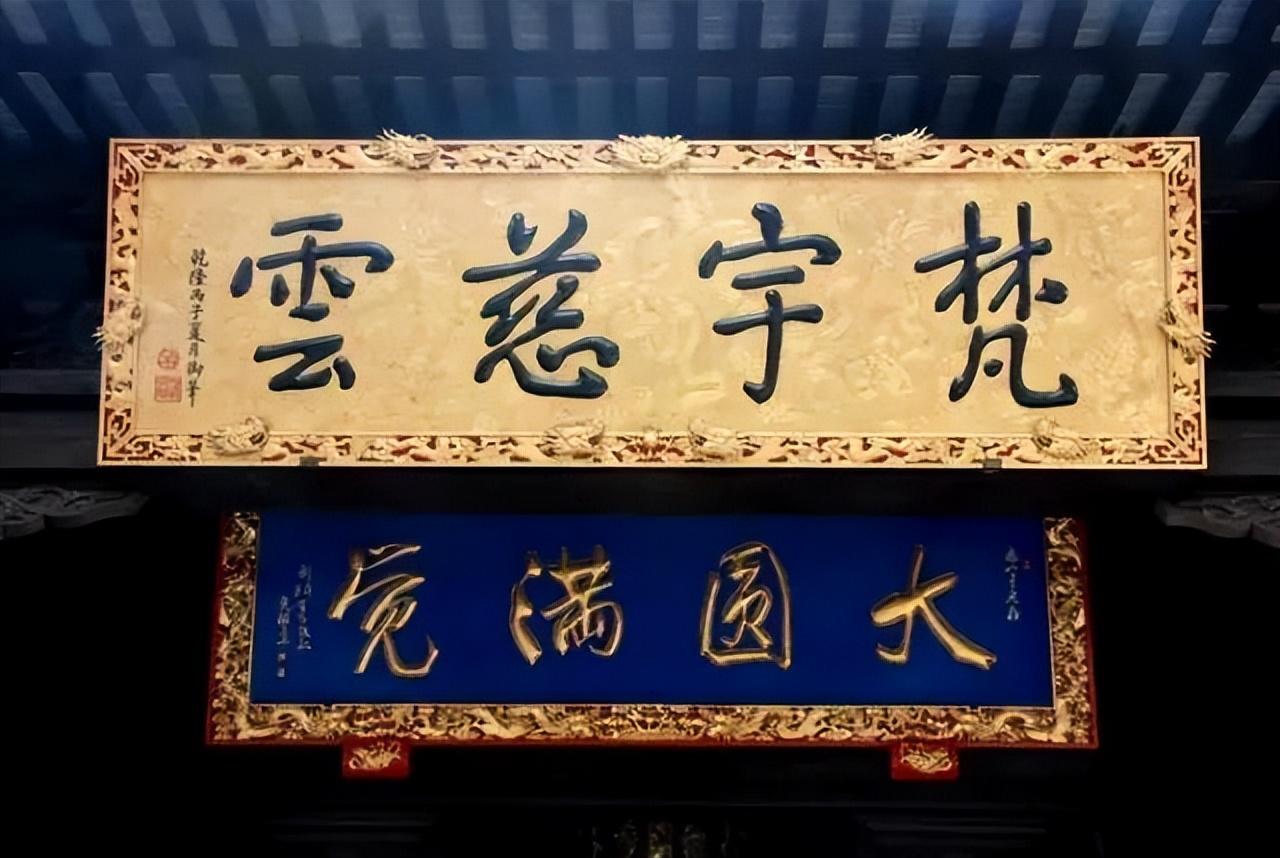 梵宇慈雲
乾隆丙子夏月御筆
大圓满覺